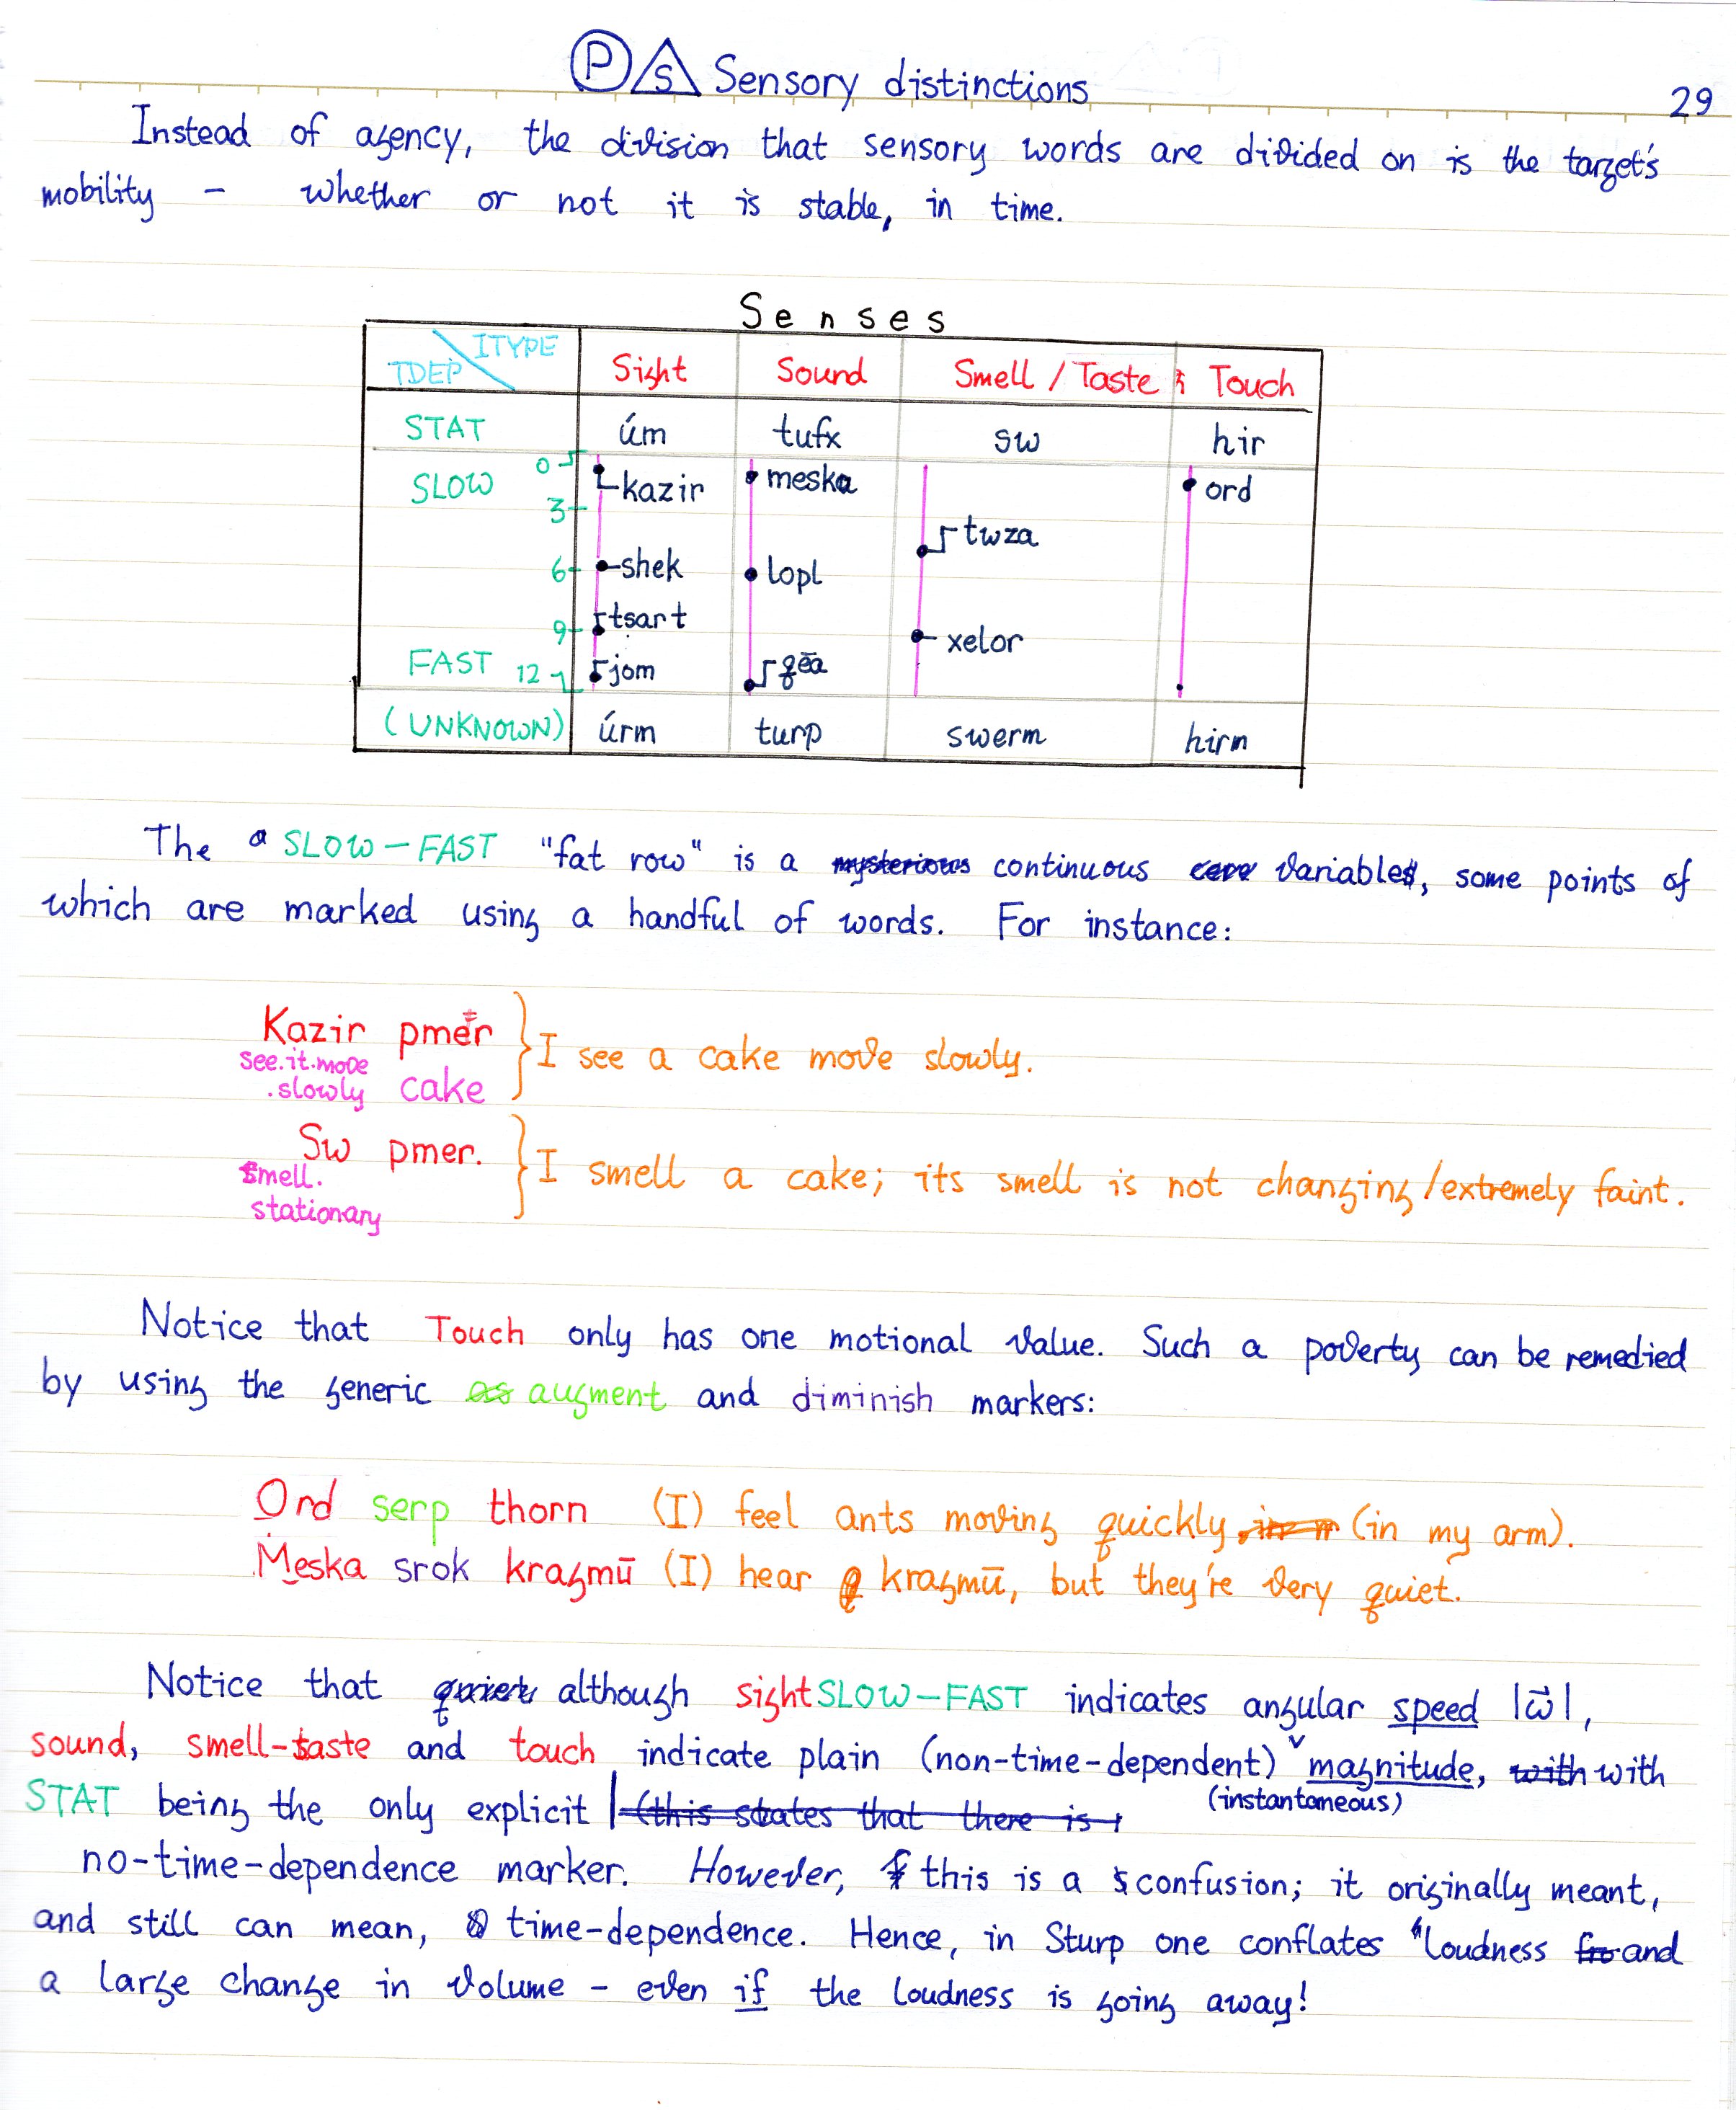 P S Sensory distinctions
29
Instead of agency, the division that sensory words are divided on is the target's
mobility – whether or not it is stable, in time.
Senses
TDEP \ ITYPE Sight Sound Smell / Taste Touch
STAT úm tufx sw hir
0
SLOW kazir meska ord
3
twza
6 shek lopl
9 tsart
xelor
FAST 12 jom qēa
(UNKNOWN) úrm turp swerm hirm
The SLOW–FAST "fat row" is a mysterious continuous variable, some points of
which are marked using a handful of words. For instance:
Kazir pmer } I see a cake move slowly.
see.it.move
.slowly cake
Sw pmer. } I smell a cake; its smell is not changing/extremely faint.
smell.
stationary
Notice that Touch only has one motional value. Such a poverty can be remedied
by using the generic as augment and diminish markers:
Ord serp thorn (I) feel ants moving quickly (in my arm).
Meska srok kragmū (I) hear kragmū, but they're very quiet.
Notice that quiet although sight SLOW–FAST indicates angular speed |ω⃗|,
sound, smell-taste and touch indicate plain (non-time-dependent) ˅ magnitude, with with
(instantaneous)
STAT being the only explicit | (this states that there is
no-time-dependence marker. However, this is a confusion; it originally meant,
and still can mean, time-dependence. Hence, in Sturp one conflates "loudness and
a large change in volume – even if the loudness is going away!